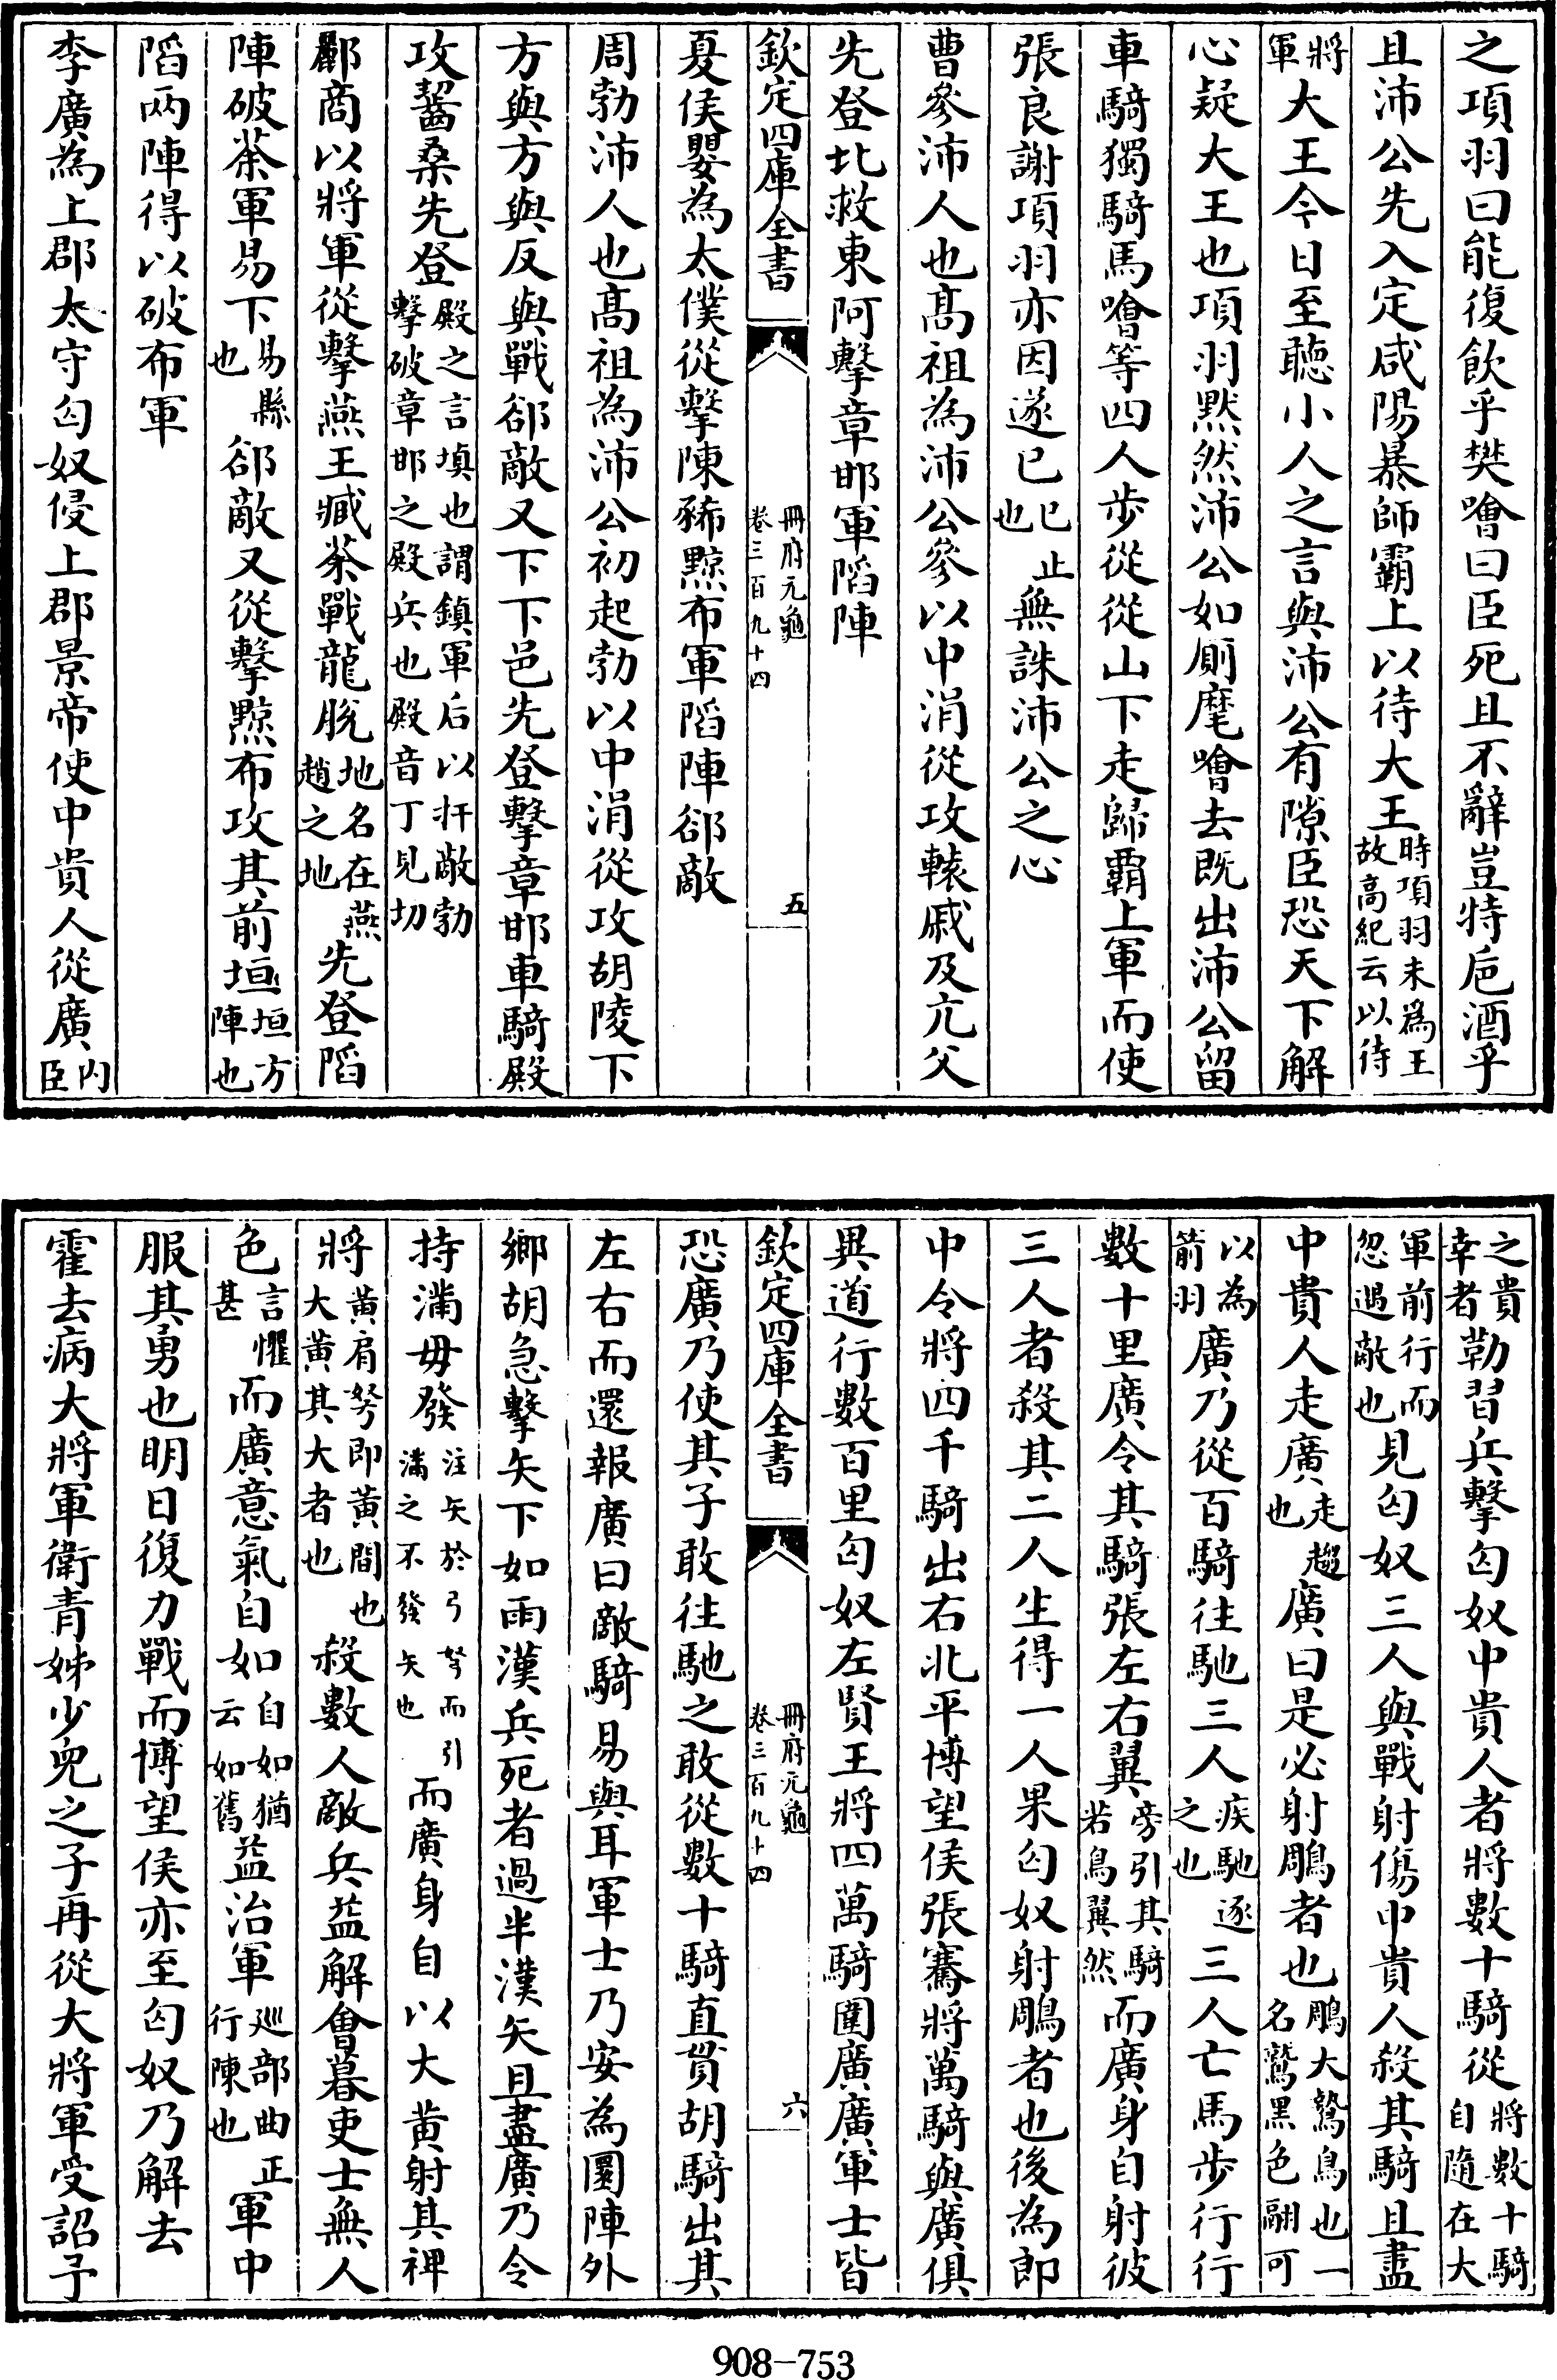 之項羽曰能復飲乎樊噲曰臣死且不辭豈特巵酒乎
且沛公先入定咸陽暴師霸上以待大王時項羽未爲王故高紀云以待
將軍大王今日至聽小人之言與沛公有隙臣恐天下解
心疑大王也項羽默然沛公如厠麾噲去既出沛公留
車騎獨騎馬噲等四人步從從山下走歸霸上軍而使
張良謝項羽亦因遂已已止也無誅沛公之心
曹參沛人也髙祖為沛公參以中涓從攻轅戚及亢父
先登北救東阿擊章邯軍䧟陣
欽定四庫全書
冊府元龜
卷三百九十四
五
夏侯嬰為太僕從擊陳豨黥布軍䧟陣郤敵
周勃沛人也髙祖為沛公初起勃以中涓從攻胡陵下
方與方與反與戰郤敵又下下邑先登擊章邯車騎殿
攻齧桑先登殿之言填也謂鎮軍后以扞敵勃擊破章邯之殿兵也殿音丁見切
酈商以將軍從擊燕王臧荼戰龍脫地名在燕趙之地先登䧟
陣破荼軍易下易縣也郤敵又從擊黥布攻其前垣垣方陣也
䧟兩陣得以破布軍
李廣為上郡太守匈奴侵上郡景帝使中貴人從廣内臣
之貴幸者勒習兵擊匈奴中貴人者將數十騎從將數十騎自隨在大
軍前行而忽遇敵也見匈奴三人與戰射傷中貴人殺其騎且盡
中貴人走廣走趨也廣曰是必射鵰者也鵰大鷲鳥也一名鷲黑色翮可
以為箭羽廣乃從百騎往馳三人疾馳逐之也三人亡馬步行行
數十里廣令其騎張左右翼旁引其騎若鳥翼然而廣身自射彼
三人者殺其二人生得一人果匈奴射鵰者也後為郎
中令將四千騎出右北平博望侯張騫將萬騎與廣俱
異道行數百里匈奴左賢王將四萬騎圍廣廣軍士皆
欽定四庫全書
冊府元龜
卷三百九十四
六
恐廣乃使其子敢往馳之敢從數十騎直貫胡騎出其
左右而還報廣曰敵騎易與耳軍士乃安為圜陣外
鄉胡急擊矢下如雨漢兵死者過半漢矢且盡廣乃令
持滿毋發注矢於弓弩而引滿之不發矢也而廣身自以大黄射其裨
將黄肩弩即黄間也大黄其大者也殺數人敵兵益解會暮吏士無人
色言懼甚而廣意氣自如自如猶云如舊益治軍廵部曲正行陳也軍中
服其勇也明日復力戰而博望侯亦至匈奴乃解去
霍去病大將軍衛青姊少兒之子再從大將軍受詔予
908-753